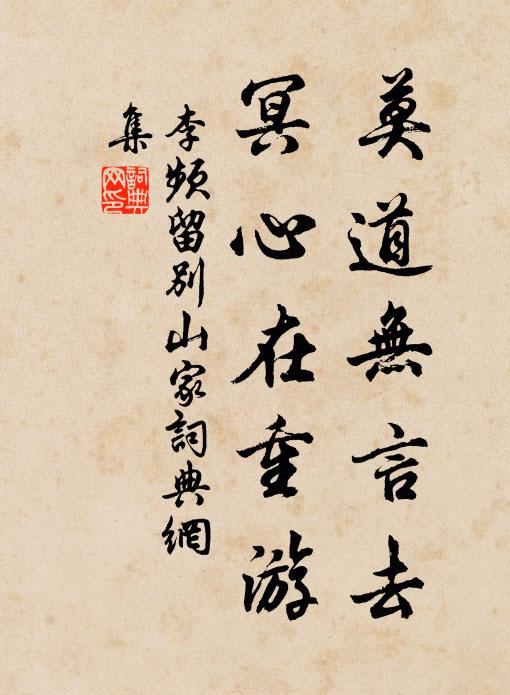 莫道無言去
冥心在重游
李頻留別山家詞典網
集
詞典
网印